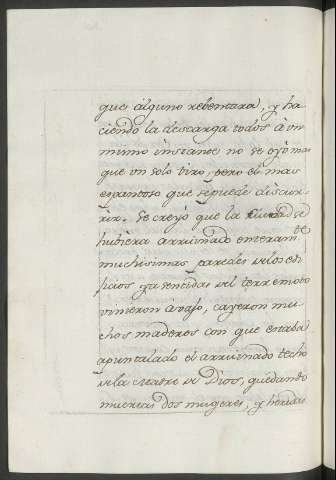 que alguno rebentara, y ha
ciendo la descarga todos à un
mismo instante no se oyó mas
que un solo tiro, pero el mas
espantoso que se puede discur-
rir. Se creyó que la Ciudad se
hubiera arruinado enteram.te
muchisimas paredes de los edi
ficios ya sentidas del terremoto
vinieron àvajo, cayeron mu
chos maderos con que estaba
apuntalado el arruinado techo
de la Madre de Dios, quedando
muertas dos mugeres, y heridas